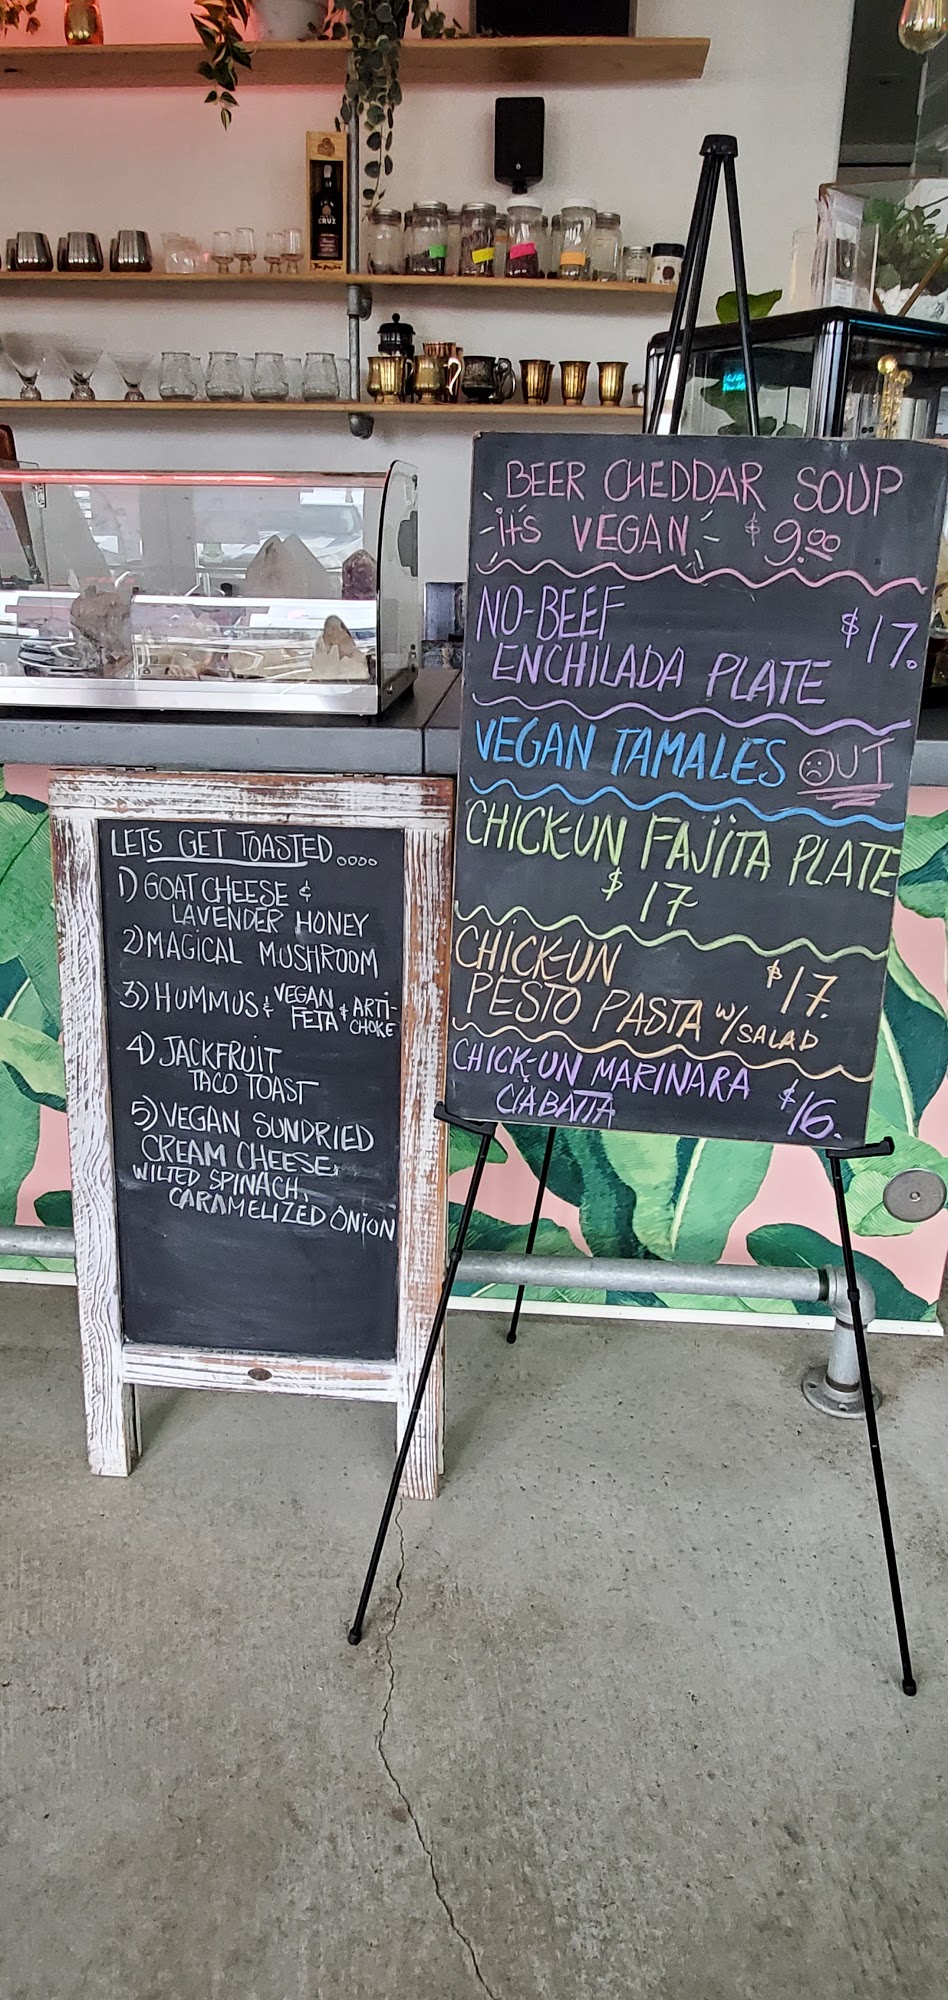 CRUZ
LETS GET TOASTED....
1) GOAT CHEESE &
LAVENDER HONEY
2) MAGICAL MUSHROOM
3) HUMMUS & VEGAN FETA & ARTI-CHOKE
4) JACKFRUIT
TACO TOAST
5) VEGAN SUNDRIED
CREAM CHEESE,
WILTED SPINACH,
CARAMELIZED ONION
BEER CHEDDAR SOUP
it's VEGAN $9.00
NO-BEEF $17.
ENCHILADA PLATE
VEGAN TAMALES OUT
CHICK-UN FAJITA PLATE
$17
CHICK-UN $17.
PESTO PASTA w/ SALAD
CHICK-UN MARINARA
CIABATTA $16.